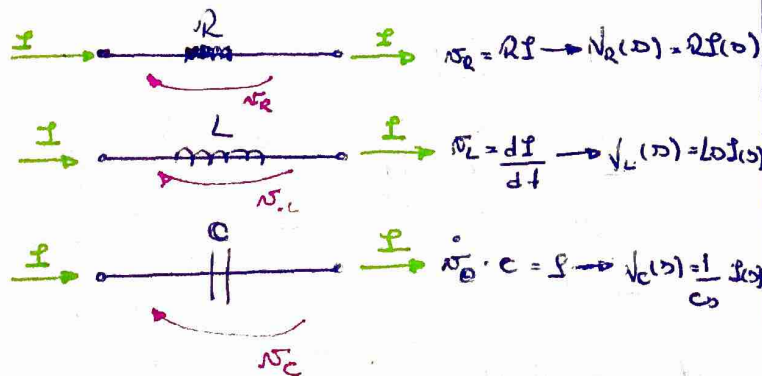 R
I I v_R = RI → V_R(s) = RI(s)
v_R
L
I I v_L = dI/dt → V_L(s) = LsI(s)
v_L
C
I I v̇_C · C = I → V_C(s) = 1/Cs I(s)
v_C